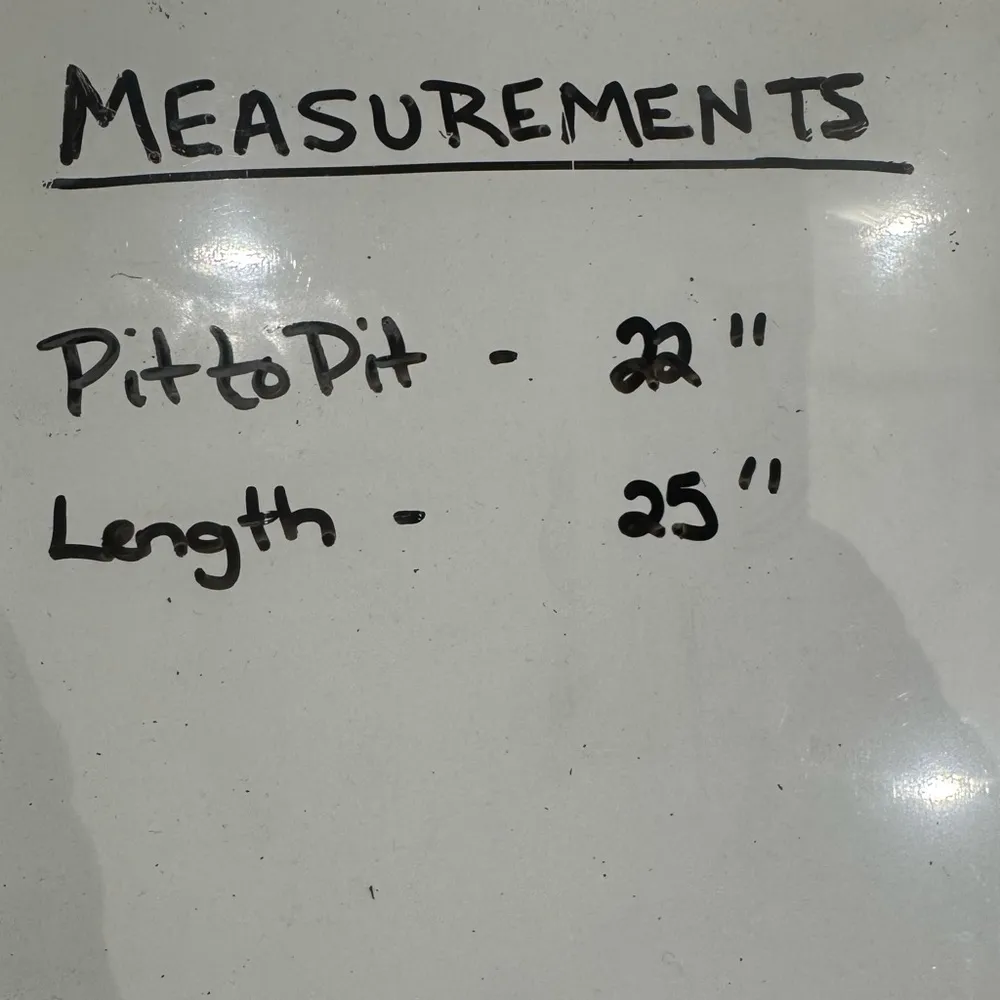 MEASUREMENTS
Pit to Pit - 22"
Length - 25"